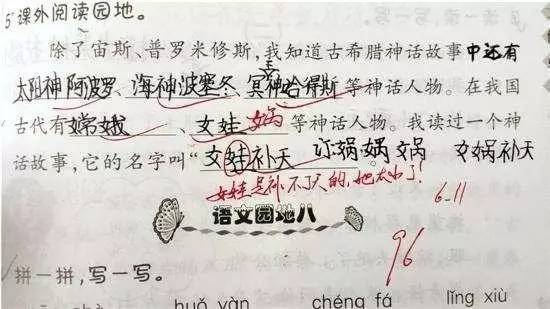 5 课外阅读园地。
除了宙斯、普罗米修斯,我知道古希腊神话故事中还有
太阳神阿波罗、海神波塞冬、冥神哈得斯等神话人物。在我国
古代有嫦娥、女娃 娲 等神话人物。我读过一个神
话故事,它的名字叫“女娃补天 订娲娲 女娲 女娲补天
女娃是补不了天的,她太小了!
6.11
语文园地八
96
拼一拼,写一写。
huǒ yàn chéng fá lǐng xiù